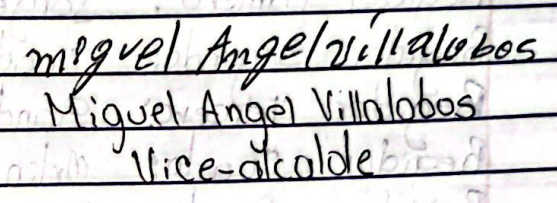 miguel Angel villalobos
Miguel Angel Villalobos
Vice-alcalde